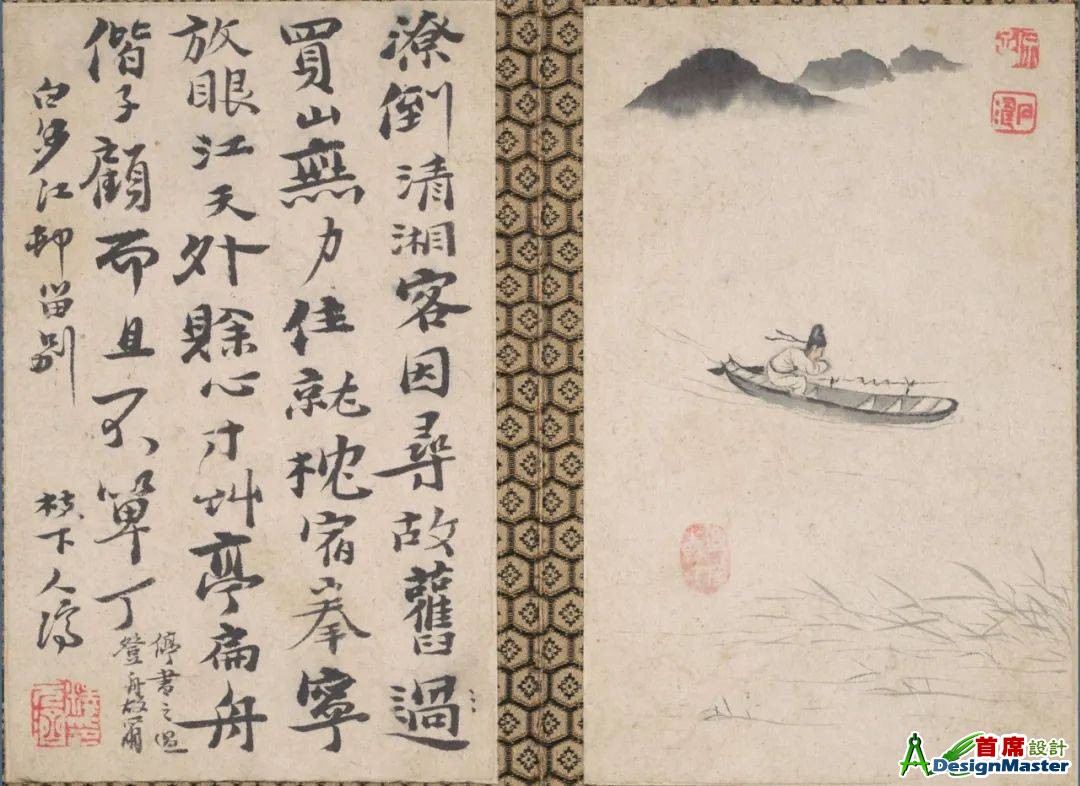 潦倒清湘客因尋故舊過
買山無力住就枕宿拳寧
放眼江天外賖心寸艸亭扁舟
偕子顧而且不單丁
登舟故爾
白沙江邨留別 枝下人濟
首席設計
DesignMaster